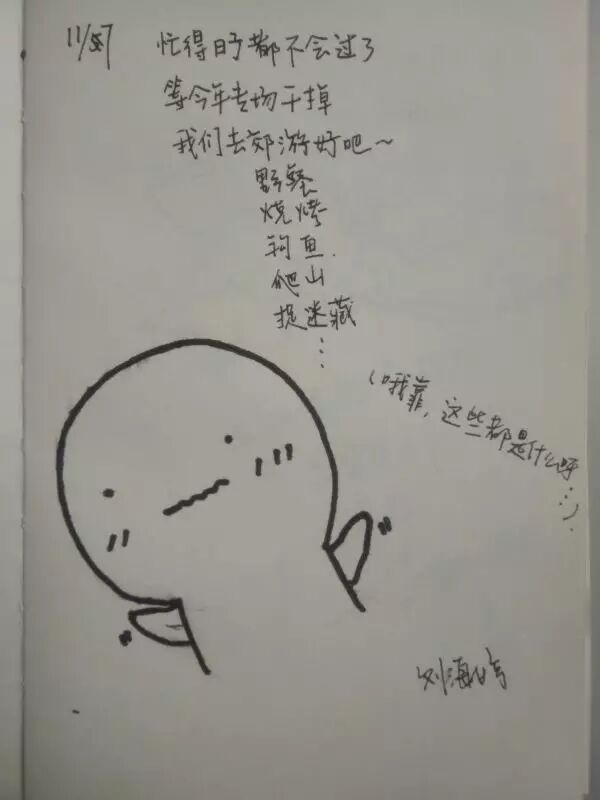 11/27
忙得日子都不会过了
等今年专场干掉
我们去郊游好吧~
野餐
烧烤
钓鱼.
爬山
捉迷藏
...
(哦靠,这些都是什么呀...)
刘海